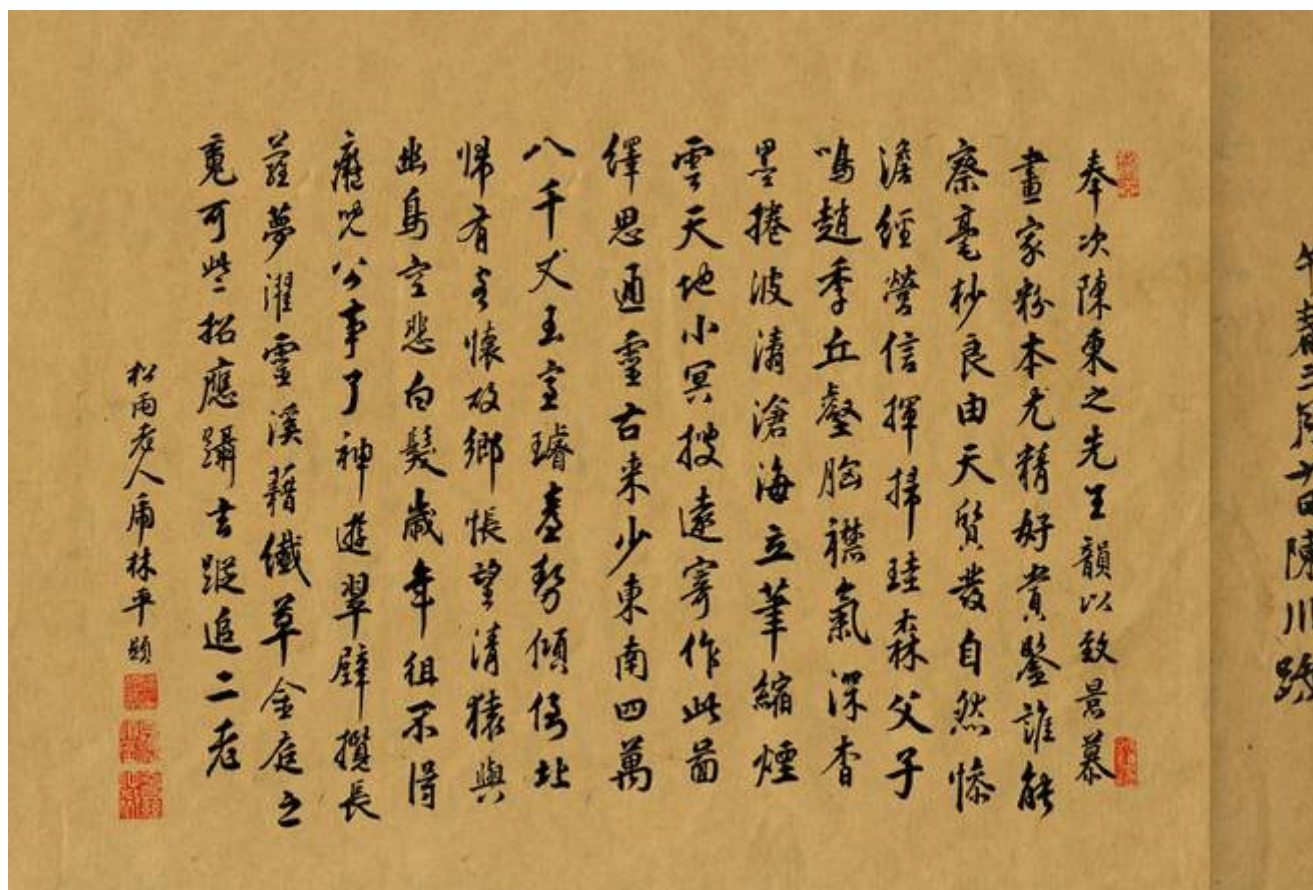 奉次陳東之先生韻以致景慕
畫家粉本尤精好賞鑒誰能
察毫杪良由天質發自然慘
澹經營信揮掃珪森父子
鳴趙季丘壑胸襟氣深杳
墨捲波濤滄海立筆縮煙
雲天地小冥搜遠寄作此畵
繹思通靈古来少東南四萬
八千丈玉室璿臺勢傾倒北
歸有客懷故鄉悵望清猿與
幽鳥空悲白髮歲年徂不得
癡兒公事了神遊翠壁攬長
蘿夢濯靈溪藉纖草金庭之
菟可招應躡去蹤追二老
松雨老人 林平題
陳川